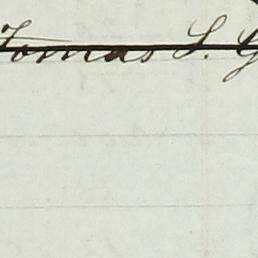 Tomas S. G